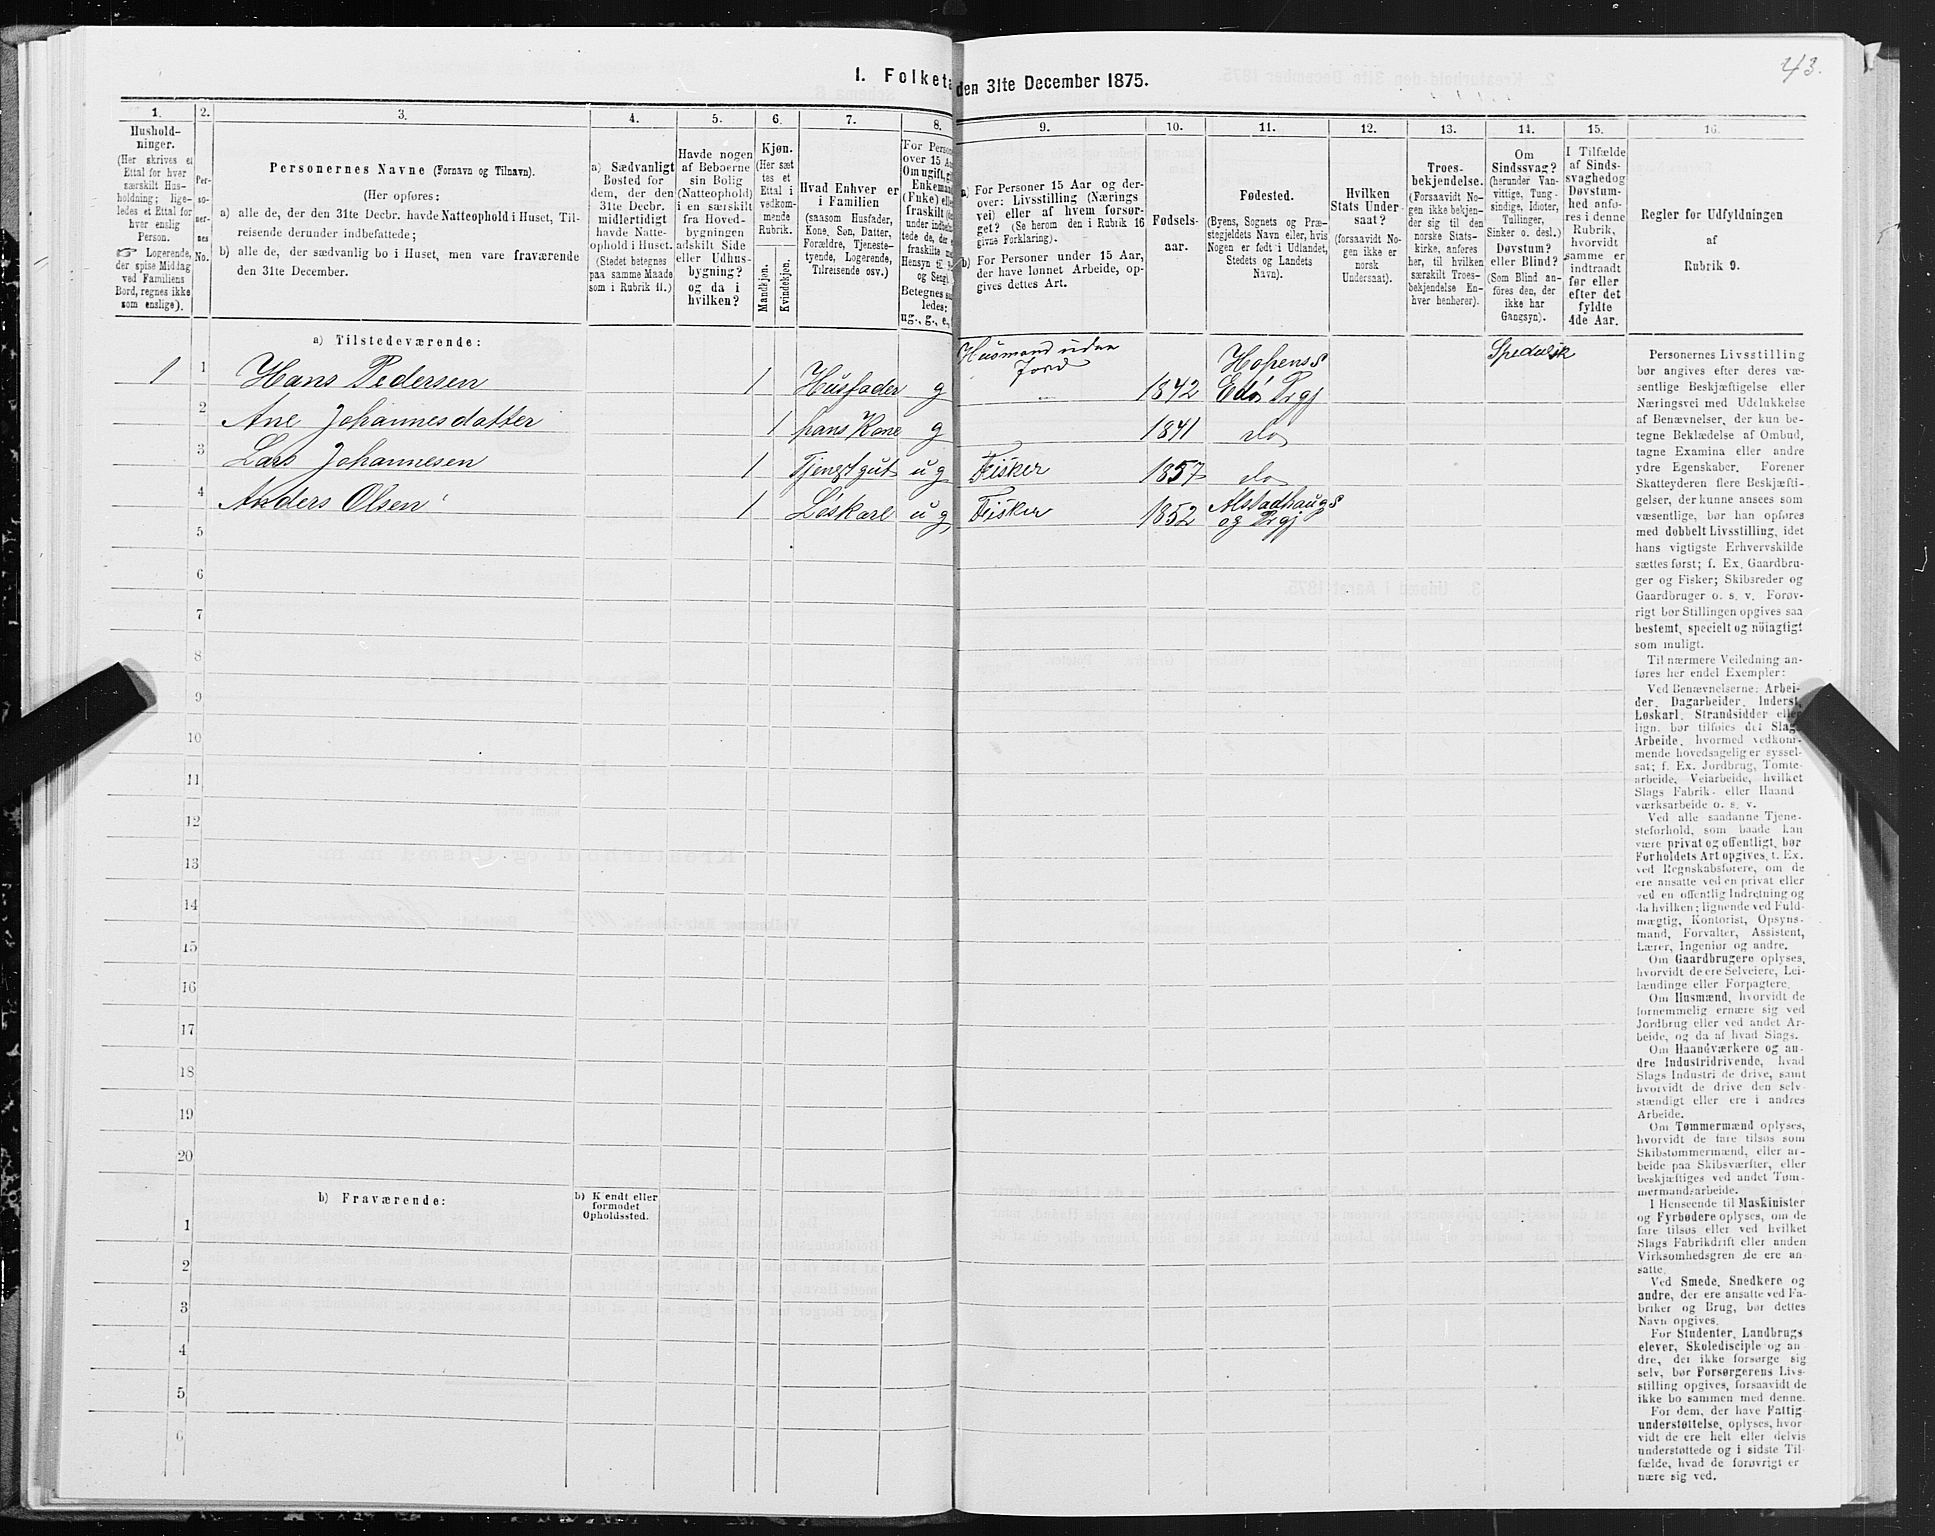 43.
1. Folketa den 31te December 1875.
1. 2. 3. 4. 5. 6. 7. 8. 9. 10. 11. 12. 13. 14. 15. 16.
Hushold-
ninger.
(Her skrives et
Ettal for hver
særskilt Hus-
holdning; lige-
ledes et Ettal for
hver enslig
Person.
☞ Logerende,
der spise Middag
ved Familiens
Bord, regnes ikke
som enslige).
Per-
so-
ner-
nes
No.
Personernes Navne (Fornavn og Tilnavn).
(Her opføres:
a) alle de, der den 31te Decbr. havde Natteophold i Huset, Til-
reisende derunder indbefattede;
b) alle de, der sædvanlig bo i Huset, men vare fraværende
den 31te December.
a) Sædvanligt
Bosted for
dem, der den
31te Decbr.
midlertidigt
havde Natte-
ophold i Huset.
(Stedet betegnes
paa samme Maade
som i Rubrik 11.)
Havde nogen
af Beboerne
sin Bolig
(Natteophold)
i en særskilt
fra Hoved-
bygningen
adskilt Side
eller Udhus-
bygning?
og da i
hvilken?
Kjøn.
(Her sæt
tes et
Ettal i
vedkom-
mende
Rubrik.
Mandkjøn.
Kvindekjøn.
Hvad Enhver er
i Familien
(saasom Husfader,
Kone, Søn, Datter,
Forældre, Tjeneste-
tyende, Logerende,
Tilreisende osv.)
For Person
over 15 Aa
Om ugift, gi
Enkemand
(Enke) elle
fraskilt (
under indbe
tede de, der
fraskilte
Hensyn til
og Seng).
Betegnes saa
ledes:
ug., g., e.,
a) For Personer 15 Aar og der-
over: Livsstilling (Nærings
vei) eller af hvem forsør-
get? (Se herom den i Rubrik 16
givne Forklaring).
b) For Personer under 15 Aar,
der have lønnet Arbeide, op-
gives dettes Art.
Fødsels-
aar.
Fødested.
(Byens, Sognets og Præ-
stegjeldets Navn eller, hvis
Nogen er født i Udlandet,
Stedets og Landets
Navn).
Hvilken
Stats Under
saat?
(forsaavidt No-
gen ikke er
norsk
Undersaat).
Troes-
bekjendelse.
(Forsaavidt No-
gen ikke bekjen-
der sig til den
norske Stats-
kirke, anføres
her, til hvilken
særskilt Troes-
bekjendelse En-
hver henhører).
Om
Sindssvag?
(herunder Van-
vittige, Tung-
sindige, Idioter,
Tullinger,
Sinker o. desl.)
Døvstum?
eller Blind?
(Som Blind an-
føres den, der
ikke har
Gangsyn).
I Tilfælde
af Sinds-
svaghed og
Døvstum-
hed anfø-
res i denne
Rubrik,
hvorvidt
samme er
indtraadt
før eller
efter det
fyldte
4de Aar.
Regler for Udfyldningen
af
Rubrik 9.
a) Tilstedeværende:
1 1 Hans Pedersen 1 Husfader g Husmand uden Jord 1842 Hopens S Edø Prgj Spedalsk
2 Ane Johannesdatter 1 hans Kone g 1841 do
3 Lars Johannesen 1 Tjenstgut ug Fisker 1857 do
4 Anders Olsen 1 Løskarl ug Fisker 1852 Alstadhaugs og Prgj
5
6
7
8
9
10
11
12
13
14
15
16
17
18
19
20
b) Fraværende:
b) Kendt eller
formodet
Opholdssted.
1
2
3
4
5
6
Personernes Livsstilling
bør angives efter deres væ-
sentlige Beskjæftigelse eller
Næringsvei med Udelukkelse
af Benævnelser, der kun be-
tegne Beklædelse af Ombud,
tagne Examina eller andre
ydre Egenskaber. Forener
Skatteyderen flere Beskjæfti-
gelser, der kunne ansees som
væsentlige, bør han opføres
med dobbelt Livsstilling, idet
hans vigtigste Erhvervskilde
sættes først; f. Ex. Gaardbru-
ger og Fisker; Skibsreder og
Gaardbruger o. s. v. Forøv-
rigt bør Stillingen opgives saa
bestemt, specielt og nöiagtigt
som muligt.
Til nærmere Veiledning an-
føres her endel Exempler:
Ved Benævnelserne: Arbei-
der, Dagarbeider, Inderst,
Løskarl, Strandsidder eller
lign. bør tilføies det Slags
Arbeide, hvormed vedkom-
mende hovedsagelig er syssel-
sat; f. Ex. Jordbrug, Tømte-
arbeide, Veiarbeide, hvilket
Slags Fabrik- eller Haand-
værksarbeide o. s. v.
Ved alle saadanne Tjene-
steforhold, som baade kan
være privat og offentligt, bør
Forholdets Art opgives, t. Ex.
ved Regnskabsførere, om de
ere ansatte ved en privat eller
ved en offentlig Indretning og
da hvilken; lignende ved Fuld-
mægtig, Kontorist, Opsyns-
mand, Forvalter, Assistent,
Lærer, Ingeniør og andre.
Om Gaardbrugere oplyses,
hvorvidt de ere Selveiere, Lei-
lændinge eller Forpagtere.
Om Husmænd, hvorvidt de
fornemmelig ernære sig ved
Jordbrug eller ved andet Ar-
beide, og da af hvad Slags.
Om Haandværkere og an-
dre Industridrivende, hvad
Slags Industri de drive, samt
hvorvidt de drive den selv-
stændigt eller ere i andres
Arbeide.
Om Tømmermænd oplyses,
hvorvidt de fare tilsøs som
Skibstømmermænd, eller ar-
beide paa Skibsværfter, eller
beskjæftiges ved andet Tøm-
mermandsarbeide.
I Henseende til Maskinister
og Fyrbødere oplyses, om de
fare tilsøs eller ved hvilket
Slags Fabrikdrift eller anden
Virksomhedsgren de ere an-
satte.
Ved Smede, Snedkere og
andre, der ere ansatte ved Fa-
briker og Brug, bør dettes
Navn opgives.
For Studenter, Landbrugs
elever, Skoledisciple og an-
dre, der ikke forsørge sig
selv, bør Forsørgerens Livs-
stilling opgives, forsaavidt de
ikke bo sammen med denne.
For dem, der have Fattig-
understøttelse, oplyses, hvor-
vidt de ere helt eller delvis
understøttede og i sidste Til-
fælde, hvad de forøvrigt er
nære sig ved.